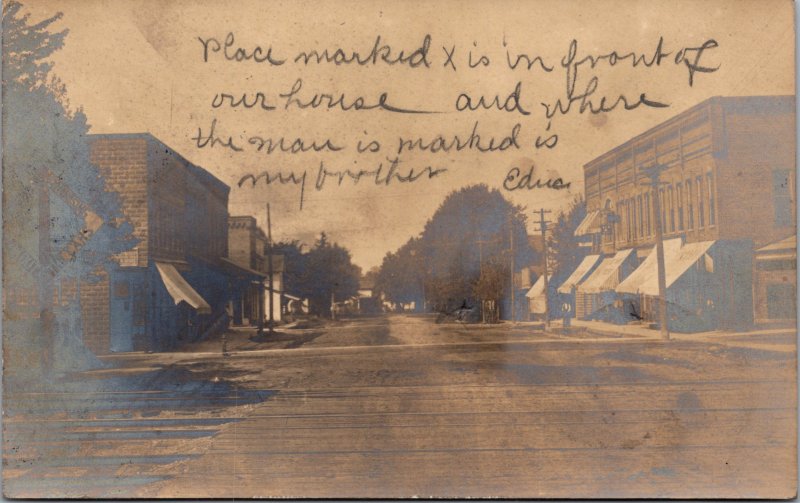 Place marked X is in front of
our house and where
the man is marked is
my brother